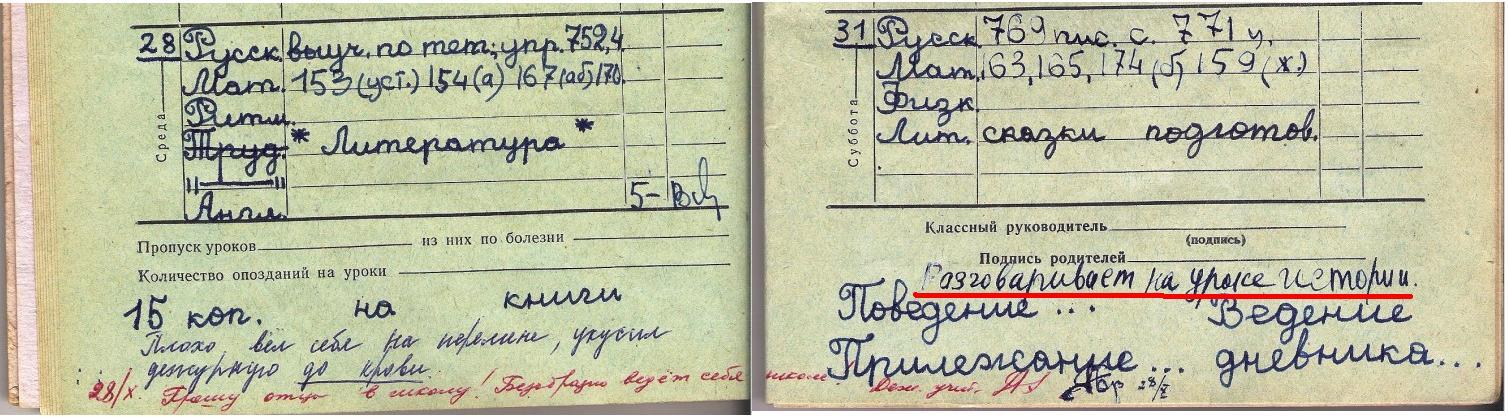 28 Русск. выуч. по тет; упр. 752,4
Среда
Мат. 153 (уст.) 154 (а) 167 (аб) 170.
Ритм.
Труд. * Литература *
Англ. 5-
Пропуск уроков из них по болезни
Количество опозданий на уроки
15 коп. на книги
Плохо вел себя на перемене, укусил
дежурную до крови.
28/X. Прошу отца в школу! Безобразно ведёт себя
31 Русск. 769 пис. с. 771 у.
Суббота
Мат. 163, 165, 174 (б) 159 (х.)
Физк.
Лит. сказки подготов.
Классный руководитель
(подпись)
Подпись родителей
Разговаривает на уроке истории.
Поведение ... Ведение
Прилежание ... дневника...
школе. Деж. учит. 28/X